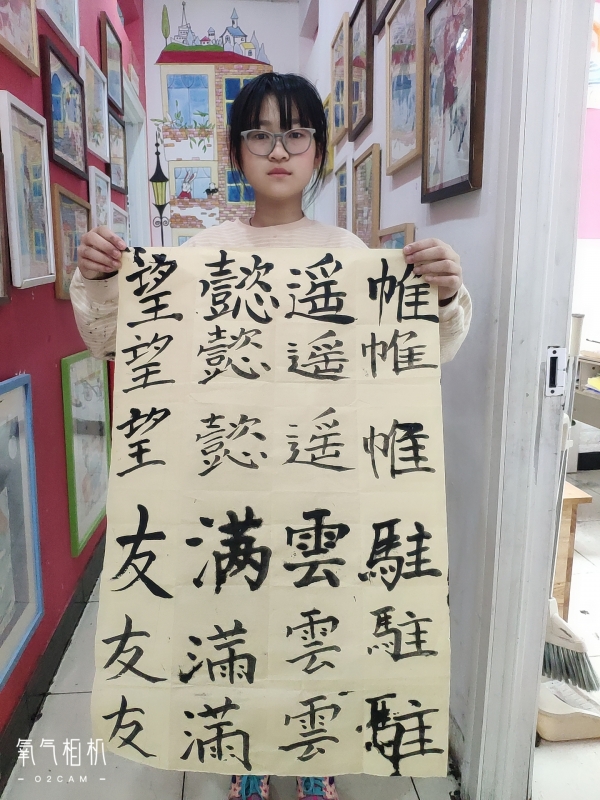 帷帷帷駐駐駐
遥遥遥雲雲雲
懿懿懿满滿滿
望望望友友友
氧气相机
O2CAM